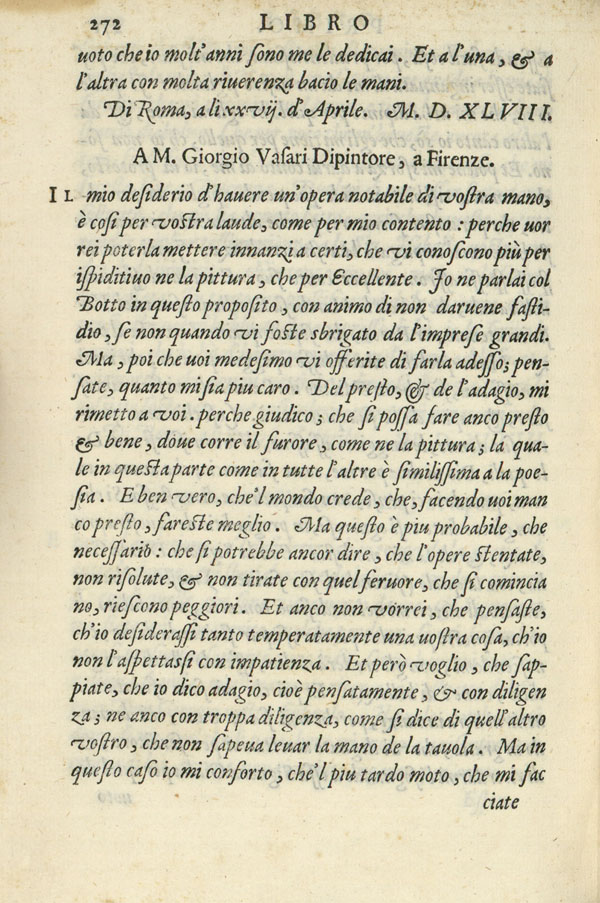 272 LIBRO
uoto che io molt'anni sono me le dedicai. Et a l'una, & a
l'altra con molta riuerenza bacio le mani.
Di Roma, a li xxvij. d'Aprile. M. D. XLVIII.
A M. Giorgio Vasari Dipintore, a Firenze.
IL mio desiderio d'hauere un'opera notabile di vostra mano,
è cosi per vostra laude, come per mio contento: perche uor
rei poterla mettere innanzi a certi, che vi conoscono più per
ispiditiuo ne la pittura, che per Eccellente. Io ne parlai col
Botto in questo proposito, con animo di non daruene fasti-
dio, se non quando vi foste sbrigato da l'imprese grandi.
Ma, poi che uoi medesimo vi offerite di farla adesso; pen-
sate, quanto mi sia piu caro. Del presto, & de l'adagio, mi
rimetto a voi. perche giudico; che si possa fare anco presto
& bene, doue corre il furore, come ne la pittura; la qua-
le in questa parte come in tutte l'altre è similissima a la poe-
sia. E ben vero, che'l mondo crede, che, facendo uoi man
co presto, fareste meglio. Ma questo è piu probabile, che
necessariò: che si potrebbe ancor dire, che l'opere stentate,
non risolute, & non tirate con quel feruore, che si comincia
no, riescono peggiori. Et anco non vorrei, che pensaste,
ch'io desiderassi tanto temperatamente una uostra cosa, ch'io
non l'aspettassi con impatienza. Et però voglio, che sap-
piate, che io dico adagio, cioè pensatamente, & con diligen
za; ne anco con troppa diligenza, come si dice di quell'altro
vostro, che non sapeua leuar la mano de la tauola. Ma in
questo caso io mi conforto, che'l piu tardo moto, che mi fac
ciate